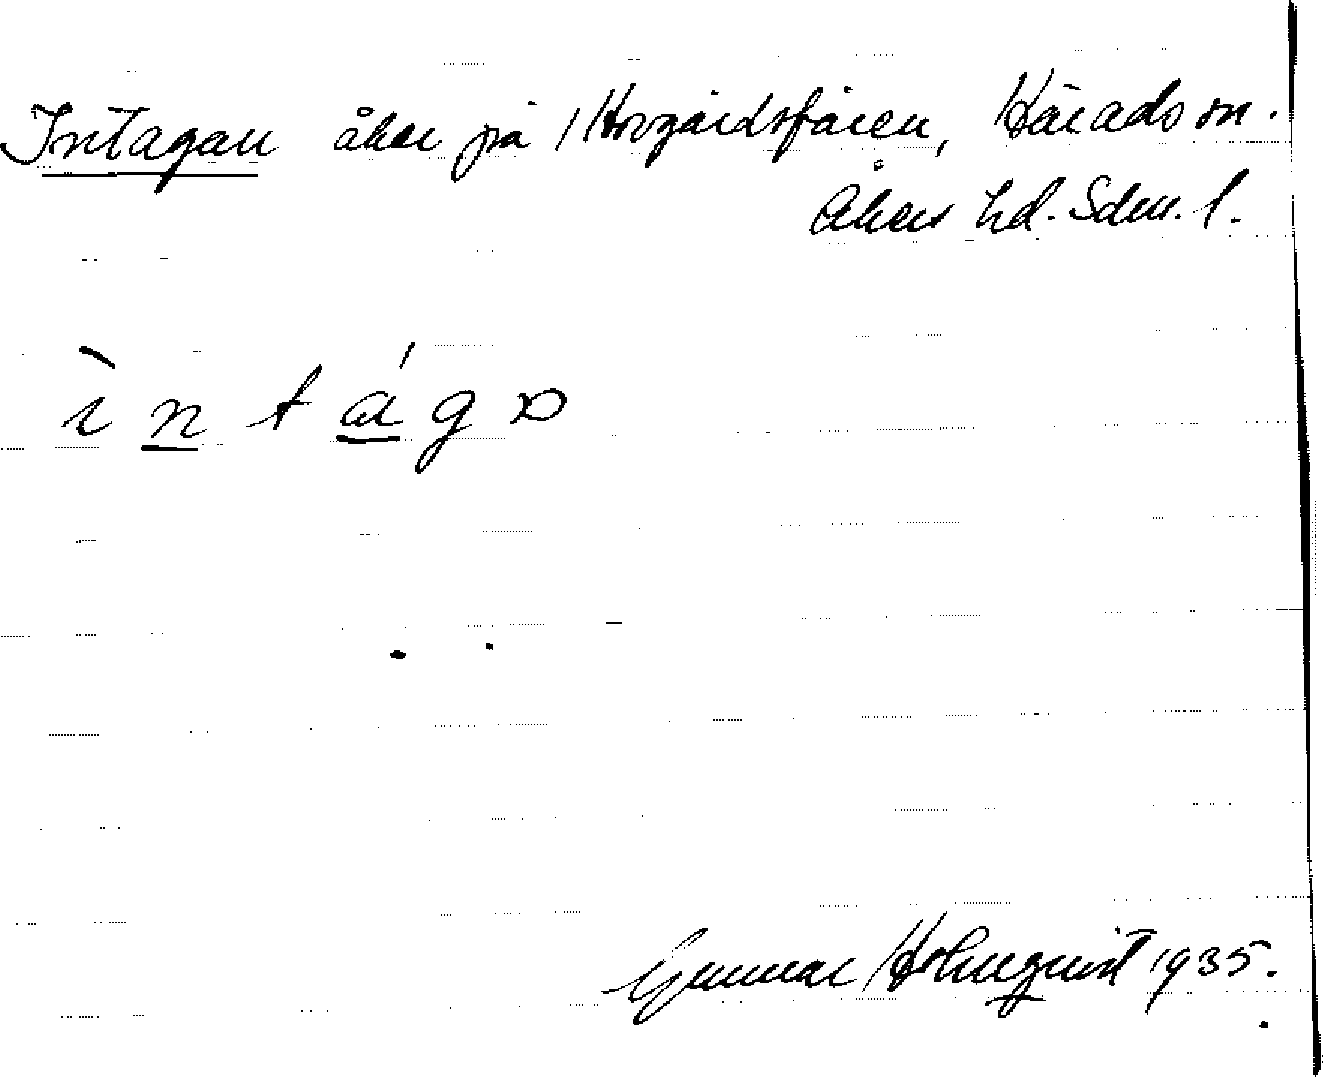 Intagan åker på Hovgårdsfåren, Härads sn.
Åkers hd. Sdm. l.
ì n t á g ɷ
Gunnar Holmquist 1935.